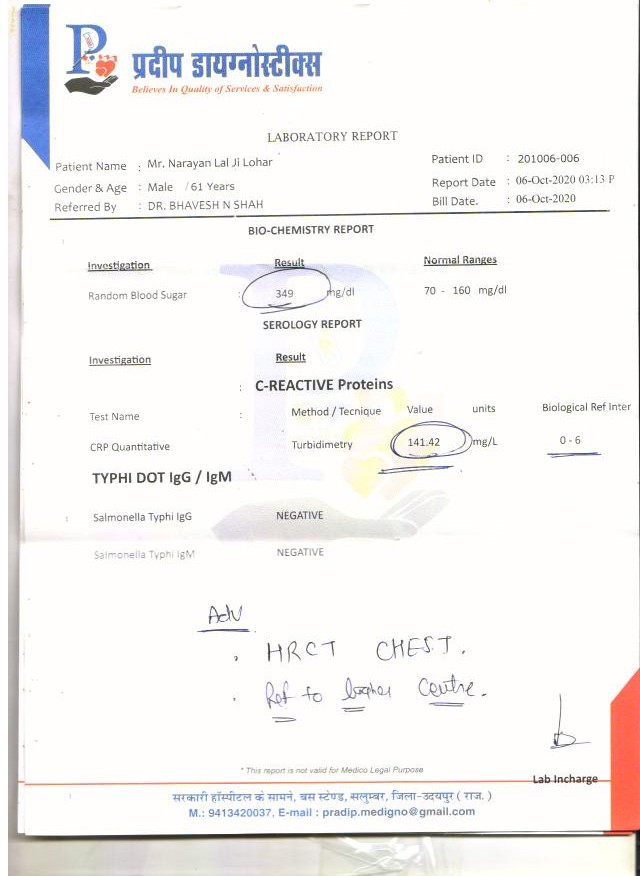 प्रदीप डायग्नोस्टीक्स
Believes In Quality of Services & Satisfaction
LABORATORY REPORT
Patient Name : Mr. Narayan Lal Ji Lohar Patient ID : 201006-006
Gender & Age : Male / 61 Years Report Date : 06-Oct-2020 03:13 P
Referred By : DR. BHAVESH N SHAH Bill Date. : 06-Oct-2020
BIO-CHEMISTRY REPORT
Investigation Result Normal Ranges
Random Blood Sugar : 349 mg/dl 70 - 160 mg/dl
SEROLOGY REPORT
Investigation Result
: C-REACTIVE Proteins
Test Name : Method / Tecnique Value units Biological Ref Inter
CRP Quantitative Turbidimetry 141.42 mg/L 0 - 6
TYPHI DOT IgG / IgM
: Salmonella Typhi IgG NEGATIVE
Salmonella Typhi IgM NEGATIVE
Adv
. HRCT CHEST.
. Ref to higher Centre.
* This report is not valid for Medico Legal Purpose
Lab Incharge
सरकारी हॉस्पीटल के सामने, बस स्टेण्ड, सलुम्बर, जिला-उदयपुर ( राज. )
M.: 9413420037, E-mail : pradip.medigno@gmail.com